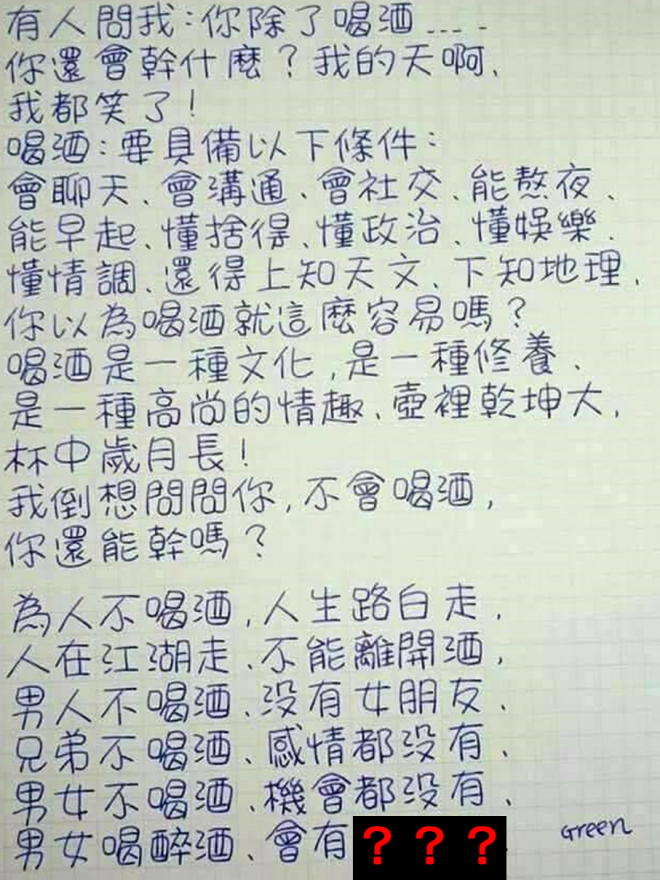 有人問我:你除了喝酒.....
你還會幹什麼?我的天啊、
我都笑了!
喝酒:要具備以下條件:
會聊天、會溝通、會社交、能熬夜、
能早起、懂捨得、懂政治、懂娛樂、
懂情調、還得上知天文、下知地理,
你以為喝酒就這麼容易嗎?
喝酒是一種文化,是一種修養、
是一種高尚的情趣、壺裡乾坤大,
杯中歲月長!
我倒想問問你,不會喝酒,
你還能幹嗎?
為人不喝酒,人生路白走,
人在江湖走、不能離開酒,
男人不喝酒、沒有女朋友、
兄弟不喝酒、感情都沒有、
男女不喝酒、機會都沒有、
男女喝醉酒、會有???
Green